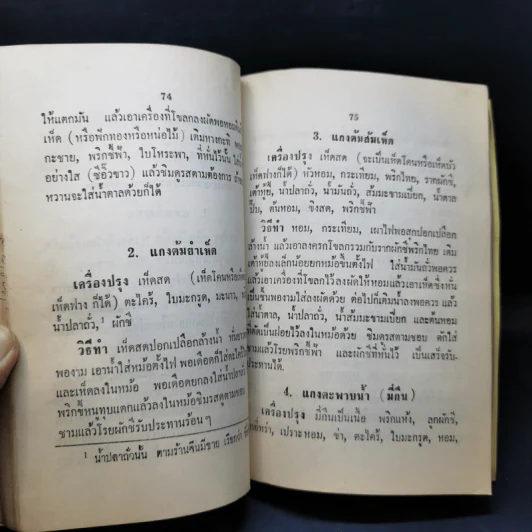 74
ให้แตกมัน แล้วเอาเครื่องที่โขลกลงผัดพอหอมดี
เห็ด (หรือฟักทองหรือหน่อไม้) เติมหางกะทิ
กะชาย, พริกชี้ฟ้า, ใบโหระพา, ที่หั่นไว้นั้น
อย่างใส (ซีอิ๊วขาว) แล้วชิมดูรสตามต้องการ
หวานจะใส่น้ำตาลด้วยก็ได้
2. แกงต้มยำเห็ด
เครื่องปรุง เห็ดสด (เห็ดโคนหรือ
เห็ดฟาง ก็ได้) ตะไคร้, ใบมะกรูด, มะนาว,
น้ำปลาถั่ว,¹ ผักชี
วิธีทำ เห็ดสดปอกเปลือกล้างน้ำ
พองาม เอาน้ำใส่หม้อตั้งไฟ พอเดือดก็ใส่ตะไคร้
และเห็ดลงในหม้อ พอเดือดยกลงใส่น้ำปลาถั่ว
พริกขี้หนูทุบแตกแล้วลงในหม้อชิมรสดูตามชอบ
ชามแล้วโรยผักชีรับประทานร้อนๆ
¹ น้ำปลาถั่วนั้น ตามร้านจีนมีขาย เรียกว่า
75
3. แกงต้มส้มเห็ด
เครื่องปรุง เห็ดสด (จะเป็นเห็ดโคนหรือเห็ดบัว
เห็ดฟางก็ได้) หัวหอม, กระเทียม, พริกไทย, รากผักชี,
เต้าหู้ยี้, น้ำปลาถั่ว, น้ำมันถั่ว, ส้มมะขามเปียก, น้ำตาล
ปีบ, ต้นหอม, ขิงสด, พริกชี้ฟ้า
วิธีทำ หอม, กระเทียม, เผาไฟพอสุกปอกเปลือก
ล้างน้ำ แล้วเอาลงครกโขลกรวมกับรากผักชีพริกไทย เติม
เต้าหู้ยี้ลงเล็กน้อยยกหม้อขึ้นตั้งไฟ ใส่น้ำมันถั่วพอควร
แล้วเอาเครื่องที่โขลกไว้ลงผัดให้หอมแล้วเอาเห็ดซึ่งหั่น
เป็นชิ้นพองามใส่ลงผัดด้วย ต่อไปก็เติมน้ำลงพอควร แล้ว
ใส่น้ำตาล, น้ำปลาถั่ว, น้ำส้มมะขามเปียก และต้นหอม
หั่นเป็นฝอยไว้ลงในหม้อด้วย ชิมดูรสตามชอบ ตักใส่
ชามแล้วโรยพริกชี้ฟ้า และผักชีที่หั่นไว้ เป็นเสร็จรับ-
ประทานได้.
4. แกงตะพาบน้ำ (มี่กึน)
เครื่องปรุง มี่กึนเป็นเนื้อ พริกแห้ง, ลูกผักชี,
ยี่หร่า, เปราะหอม, ข่า, ตะไคร้, ใบมะกรูด, หอม,